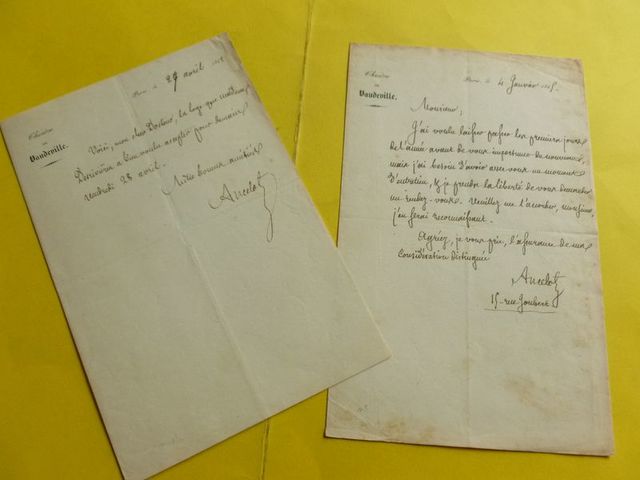 Théâtre
du
Vaudeville.
Paris, le 27 avril
Voici, mon cher Docteur, la loge que madame
a bien voulu accepter pour demain
vendredi 28 avril.
Mille bonnes amitiés
Ancelot
Théâtre
du
Vaudeville.
Paris, le 4 Janvier 1845.
Monsieur,
J'ai voulu laisser passer les premiers jours
de l'année avant de vous importuner de nouveau,
mais j'ai besoin d'avoir avec vous un moment
d'entretien, & je prends la liberté de vous demander
un rendez-vous. Veuillez me l'accorder, monsieur,
j'en serai reconnaissant.
Agréez, je vous prie, l'assurance de ma
Considération Distinguée
Ancelot
15 - rue Joubert